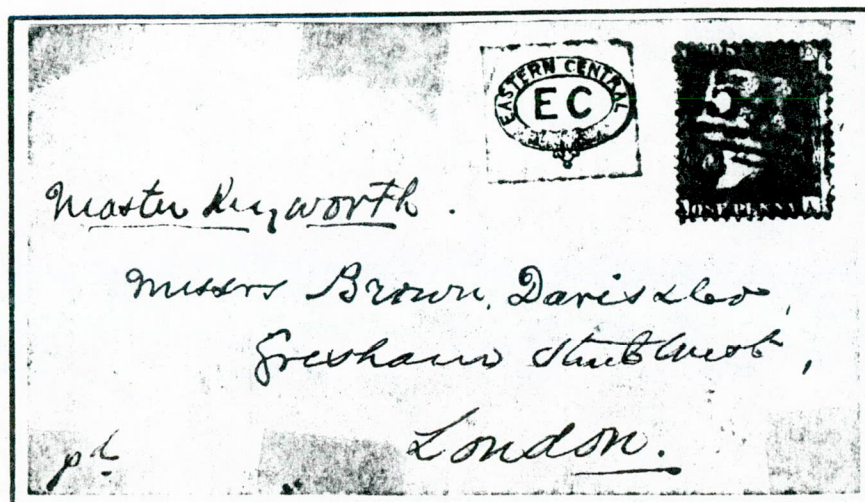 EASTERN CENTRAL
EC
5
ONE PENNY A
Master Kenyworth.
Messrs Brown, Davis & Co,
Gresham Street West,
London.
pd